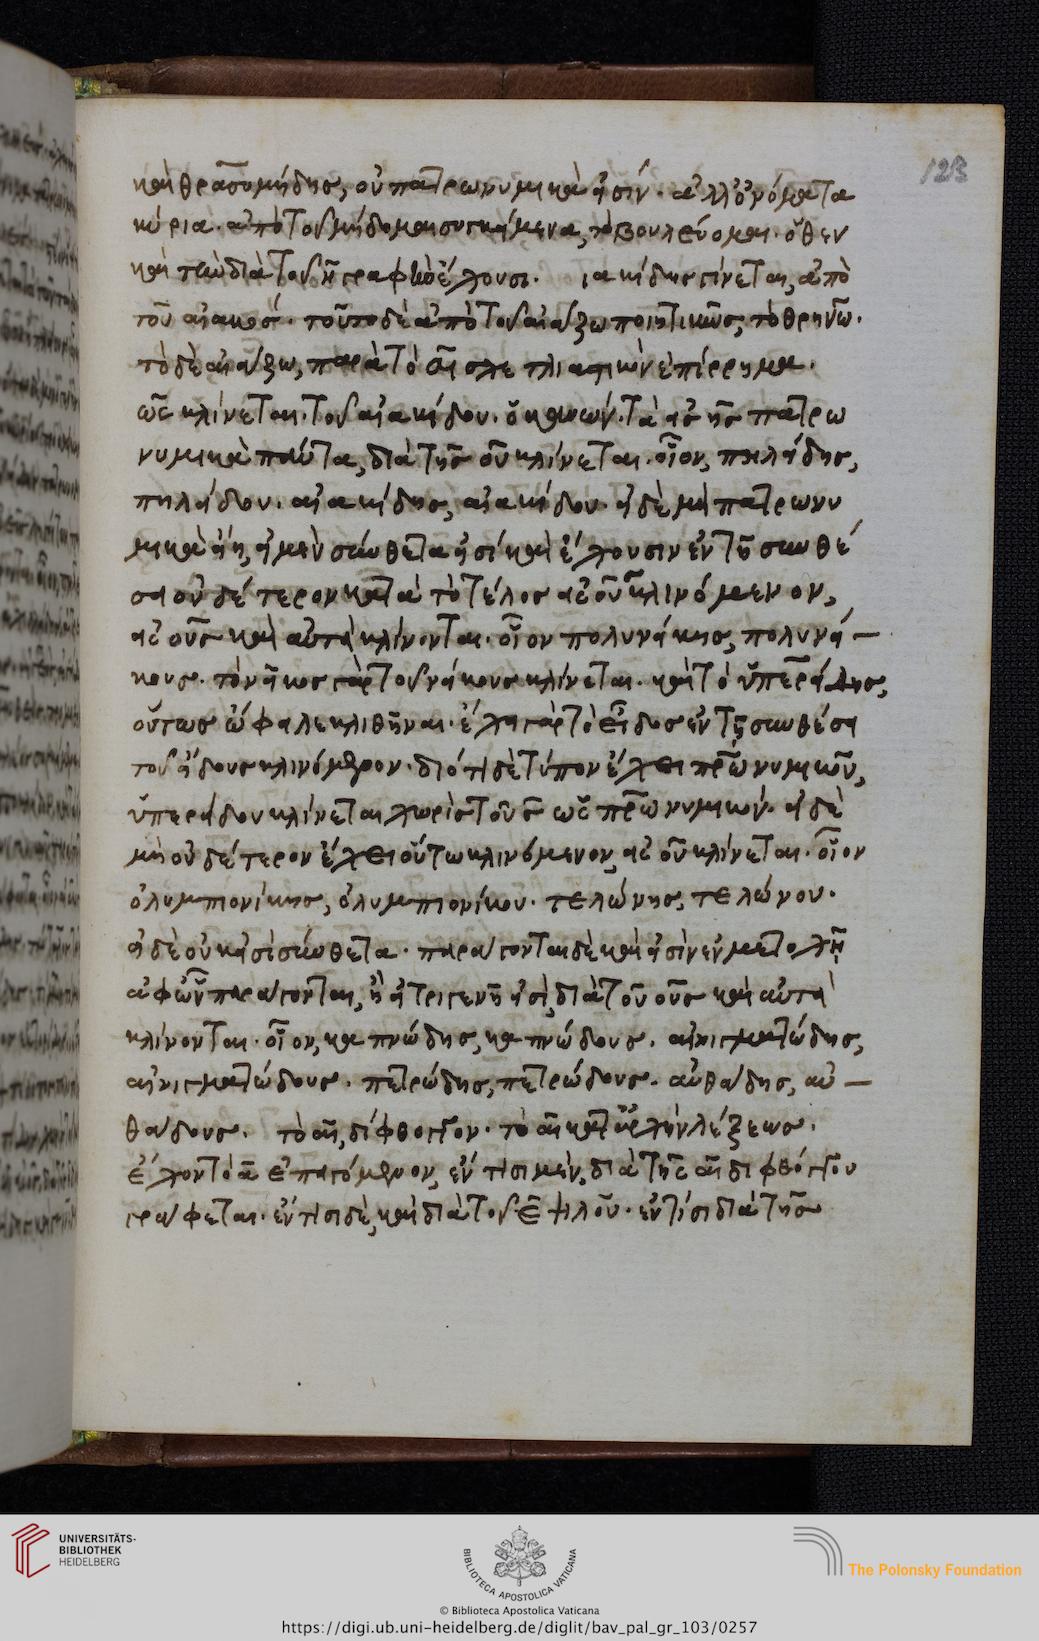 123
καὶ θρασυμήδης, οὐ πατρωνυμικὰ εἰσίν. ἀλλ' ὀνόματα
κύρια. ἀπὸ τοῦ μήδομαι συγκείμενα, τὸ βουλεύομαι. ὅθεν
καὶ τὴν διὰ τοῦ η γραφὴν ἔχουσι. ιακίδης γίνεται, ἀπὸ
τοῦ αἰακός. τοῦτο δὲ ἀπὸ τοῦ αἰάζω ποιητικῶς, τὸ θρηνῶ.
τὸ δὲ αἰάζω, παρὰ τὸ αἲ σχετλιαστικὸν ἐπίρρημα.
κλίνεται. τοῦ αἰακίδου. ὁ κανών. τὰ εἰς ης πατρω
νυμικὰ πάντα, διὰ τῆς ου κλίνεται. οἷον, πηλείδης,
πηλείδου. αἰακίδης, αἰακίδου. εἰ δὲ μὴ πατρωνυ
μικὰ εἴη, εἰ μὲν σύνθετα εἰσί καὶ ἔχουσιν ἐν τῇ συνθέ
σει οὐδέτερον κατὰ τὸ τέλος εἰς ους κλινόμενον,
εἰς ους καὶ αὐτὰ κλίνονται. οἷον πολυνείκης, πολυνεί
κους. τὸ νεῖκος γὰρ τοῦ νείκους κλίνεται. καὶ τὸ ὑπερείδης,
οὕτως ὤφειλε κλιθῆναι. ἔχει γὰρ τὸ εἶδος ἐν τῇ συνθέσει
τοῦ εἴδους κλινόμενον. διότι δὲ τύπον ἔχει πατρωνυμικῶν,
ὑπερείδου κλίνεται χωρὶς τοῦ ς ὡς πατρωνυμικόν. εἰ δὲ
μὴ οὐδέτερον ἔχει οὕτω κλινόμενον, εἰς ου κλίνεται. οἷον
ὀλυμπιονίκης, ὀλυμπιονίκου. τελώνης, τελώνου.
εἰ δὲ οὐκ εἰσὶ σύνθετα. παράγονται δὲ καὶ εἰσὶν ἐν μετοχῇ
ἀφ' ὧν παράγονται, ἢ εἰ τριγενῆ εἰσὶ, διὰ τοῦ ους καὶ αὐτὰ
κλίνονται. οἷον, καπνώδης, καπνώδους. αἰνιγματώδης,
αἰνιγματώδους. πετρώδης, πετρώδους. αὐθάδης, αὐ
θάδους. τὸ αι, δίφθογγον. τὸ αι κατ' ἀρχὴν λέξεως.
ἔχον τὸ α ἐπαγόμενον, ἐν τισι μὲν, διὰ τῆς αι διφθόγγου
γράφεται. ἐν τισι δὲ, καὶ διὰ τοῦ ε ψιλοῦ. ἐν τίσι διὰ τῆς
UNIVERSITÄTS-
BIBLIOTHEK
HEIDELBERG
BIBLIOTECA APOSTOLICA VATICANA
The Polonsky Foundation
© Biblioteca Apostolica Vaticana
https://digi.ub.uni-heidelberg.de/diglit/bav_pal_gr_103/0257